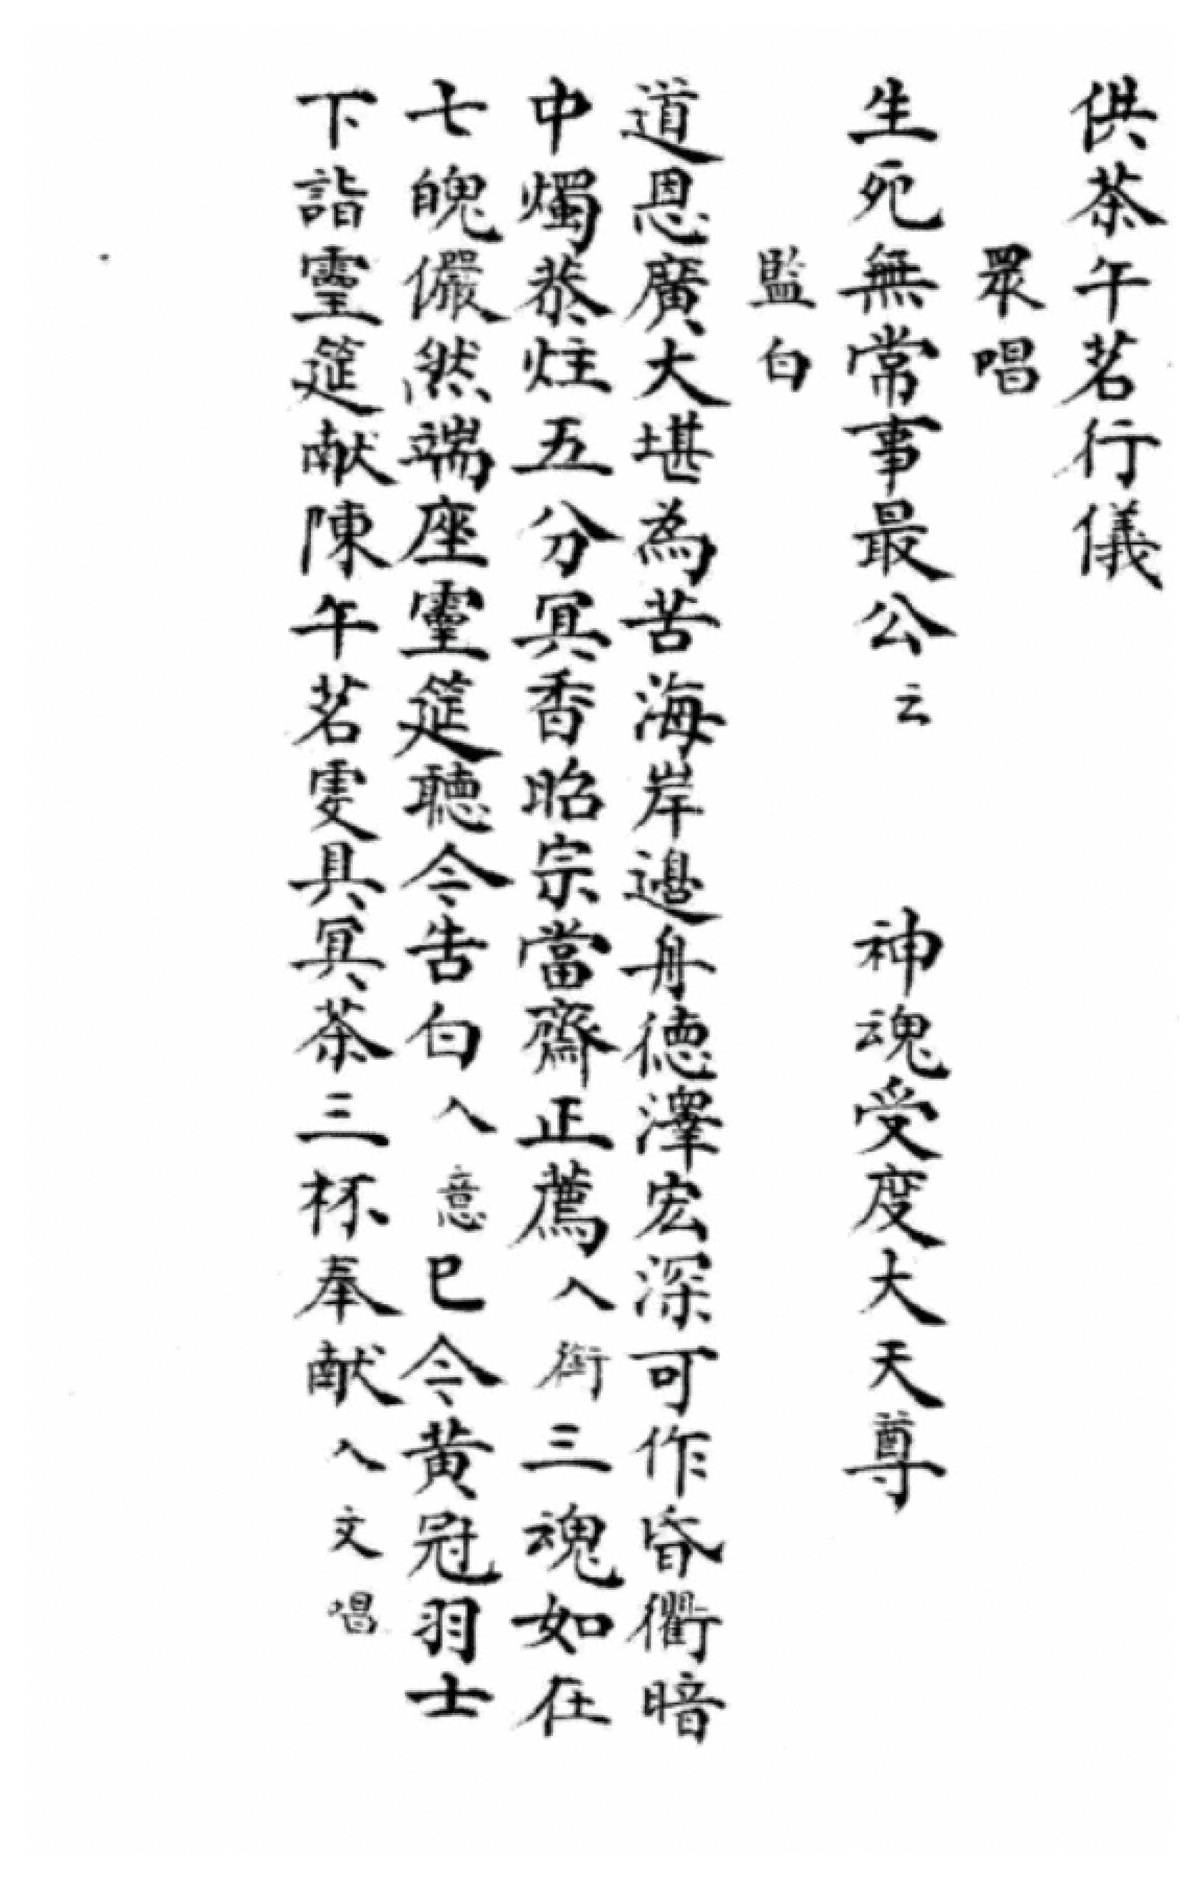 供茶午茗行儀
眾唱
生死無常事最公云 神魂受度大天尊
監白
道恩廣大堪為苦海岸邊舟德澤宏深可作昏衢暗
中燭恭炷五分冥香昭宗當齋正薦入銜三魂如在
七魄儼然端座靈筵聽令告白入意已令黃冠羽士
下詣靈筵献陳午茗雯具冥茶三杯奉献入文唱